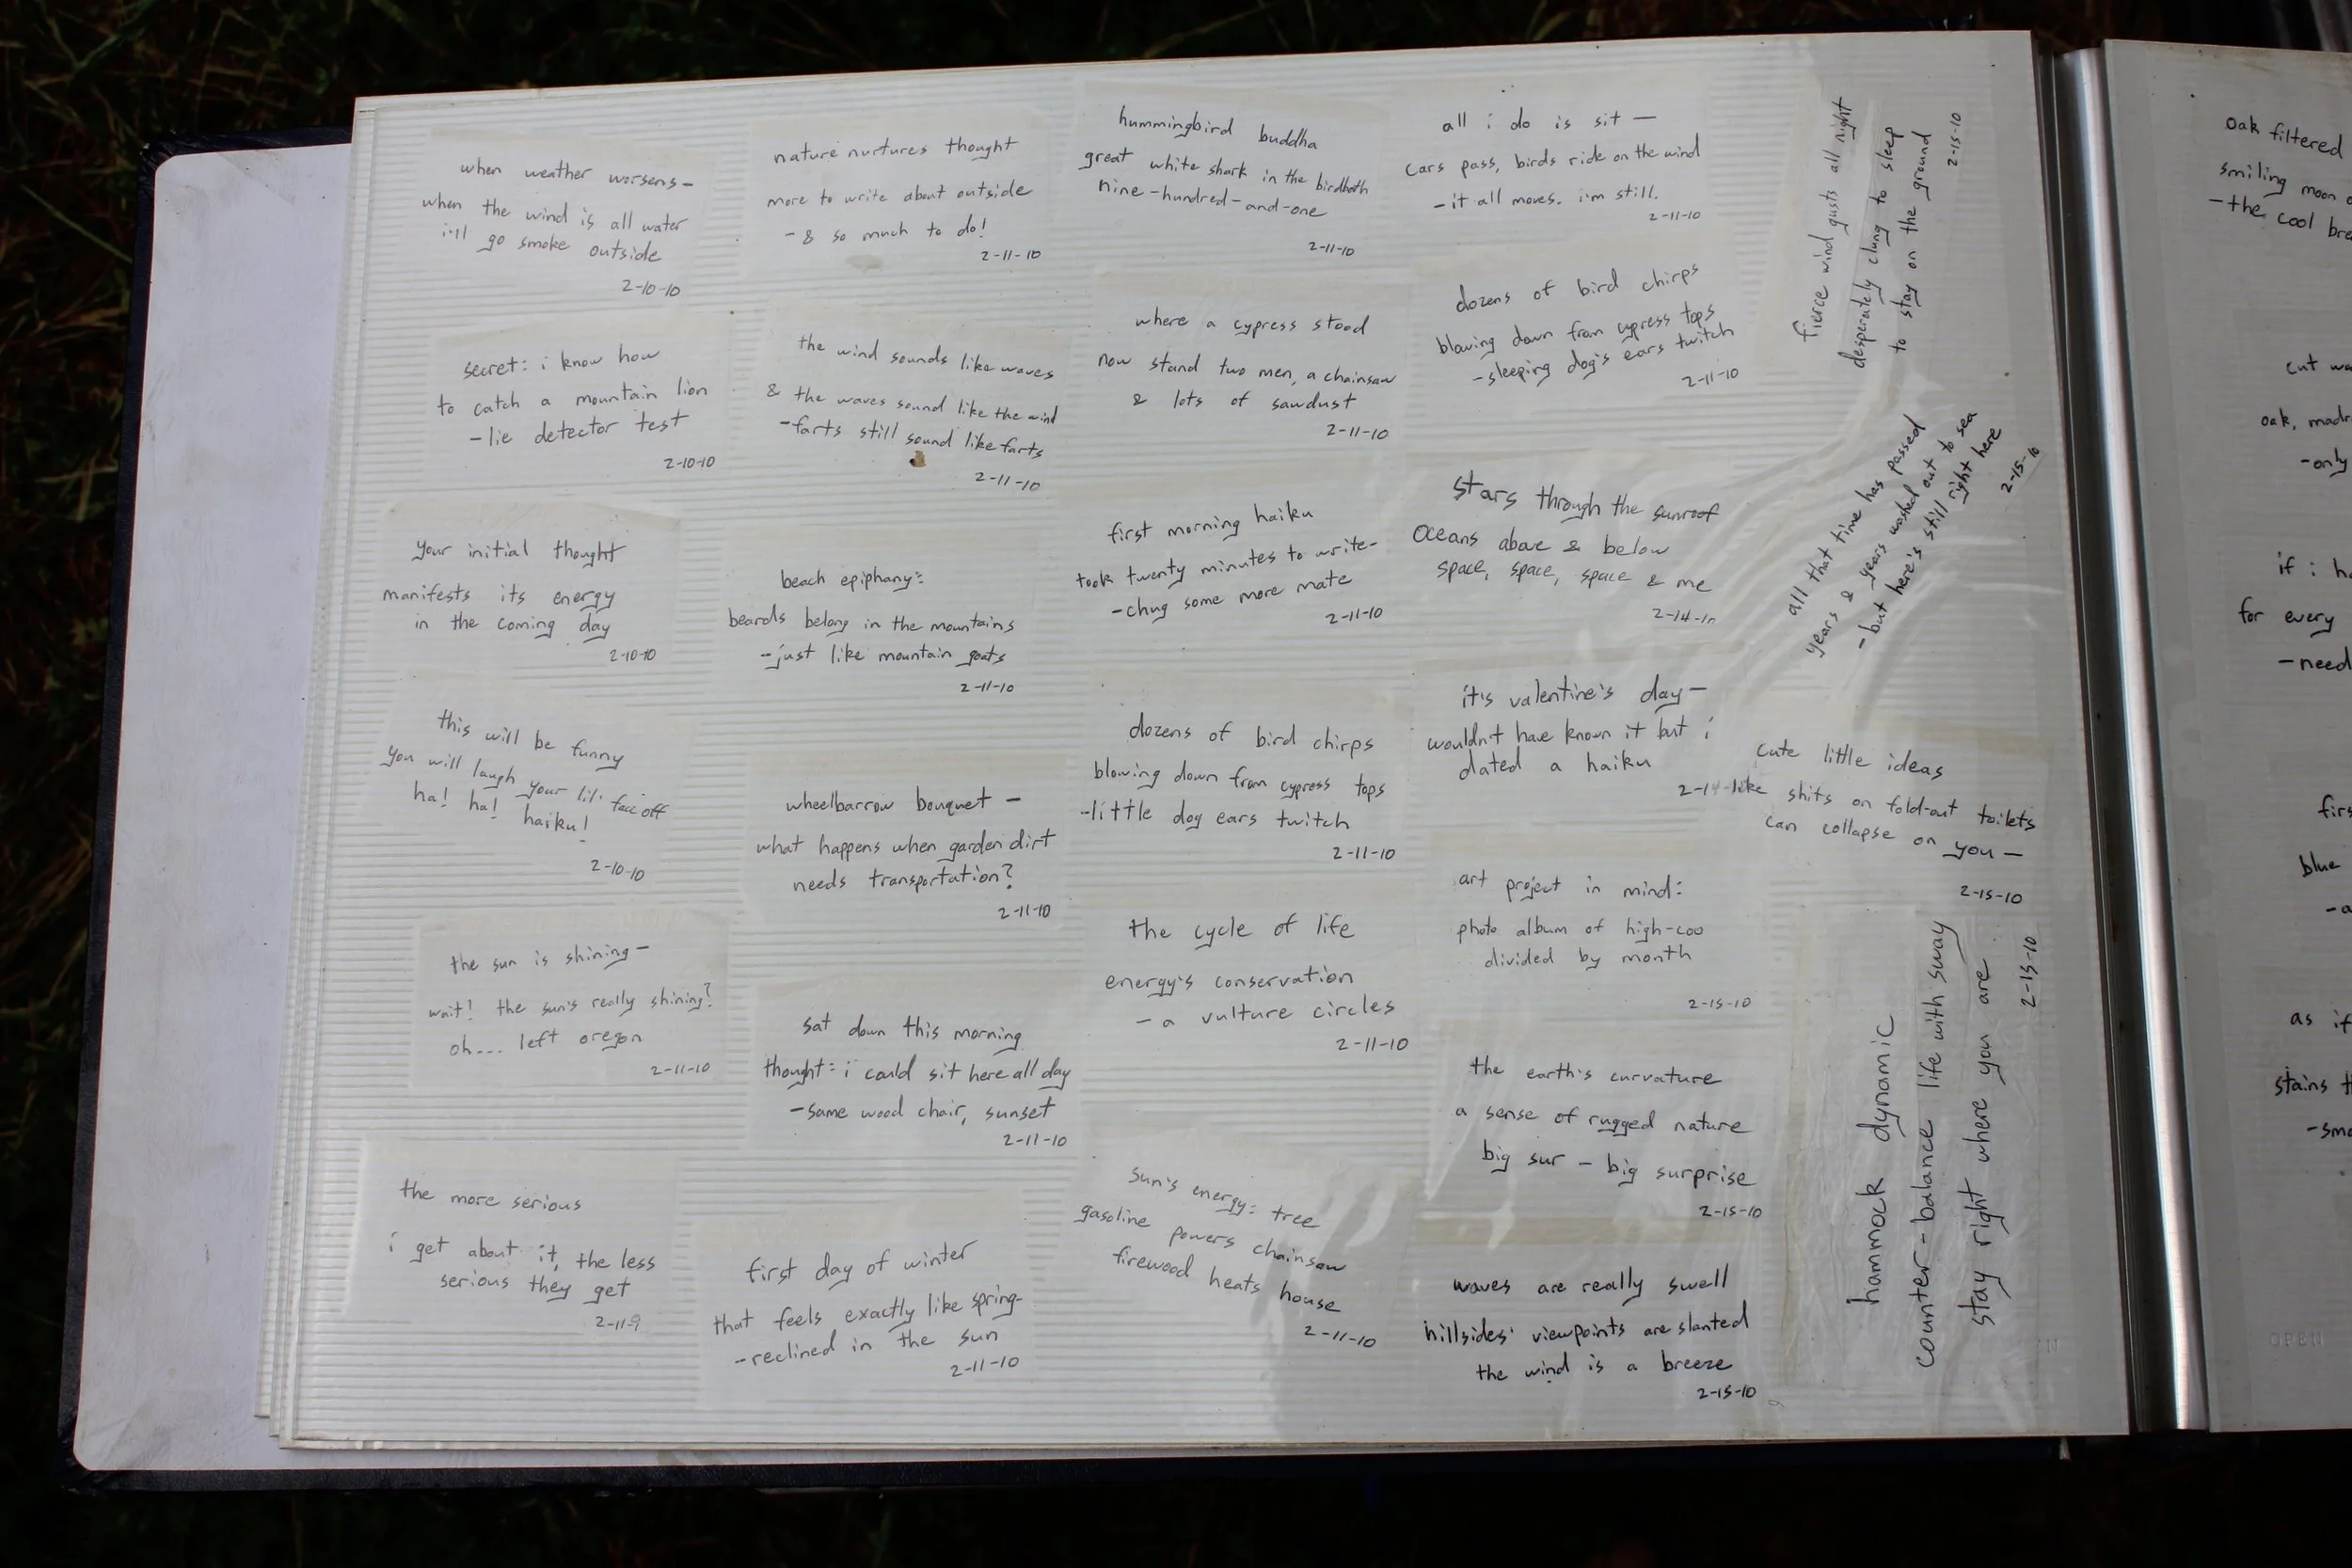 when weather worsens-
when the wind is all water
i'll go smoke outside
2-10-10
secret: i know how
to catch a mountain lion
-lie detector test
2-10-10
your initial thought
manifests its energy
in the coming day
2-10-10
this will be funny
you will laugh your lil' face off
ha! ha! haiku!
2-10-10
the sun is shining-
wait! the sun's really shining?
oh... left oregon
2-11-10
the more serious
i get about it, the less
serious they get
2-11-9
nature nurtures thought
more to write about outside
- & so much to do!
2-11-10
the wind sounds like waves
& the waves sound like the wind
-farts still sound like farts
2-11-10
beach epiphany:
beards belong in the mountains
-just like mountain goats
2-11-10
wheelbarrow bouquet -
what happens when garden dirt
needs transportation?
2-11-10
sat down this morning
thought: i could sit here all day
-same wood chair, sunset
2-11-10
first day of winter
that feels exactly like spring-
-reclined in the sun
2-11-10
hummingbird buddha
great white shark in the birdbath
nine-hundred-and-one
2-11-10
where a cypress stood
now stand two men, a chainsaw
& lots of sawdust
2-11-10
first morning haiku
took twenty minutes to write-
-chug some more mate
2-11-10
dozens of bird chirps
blowing down from cypress tops
-little dog ears twitch
2-11-10
the cycle of life
energy's conservation
- a vulture circles
2-11-10
sun's energy: tree
gasoline powers chainsaw
firewood heats house
2-11-10
all i do is sit -
cars pass, birds ride on the wind
-it all moves. i'm still.
2-11-10
dozens of bird chirps
blowing down from cypress tops
-sleeping dog's ears twitch
2-11-10
stars through the sunroof
oceans above & below
space, space, space & me
2-14-10
it's valentine's day-
wouldn't have known it but i
dated a haiku
2-14-
art project in mind:
photo album of high-coo
divided by month
2-15-10
the earth's curvature
a sense of rugged nature
big sur - big surprise
2-15-10
waves are really swell
hillsides' viewpoints are slanted
the wind is a breeze
2-15-10
fierce wind gusts all night
desperately clung to sleep
to stay on the ground
2-15-10
all that time has passed
years & years washed out to sea
- but here's still right here
2-15-10
cute little ideas
like shits on fold-out toilets
can collapse on you-
2-15-10
hammock dynamic
counter-balance life with sway
stay right where you are
2-15-10
oak filtered
smiling moon
-the cool
cut
oak,
-only
if i
for every
-need
blue
as if
stains